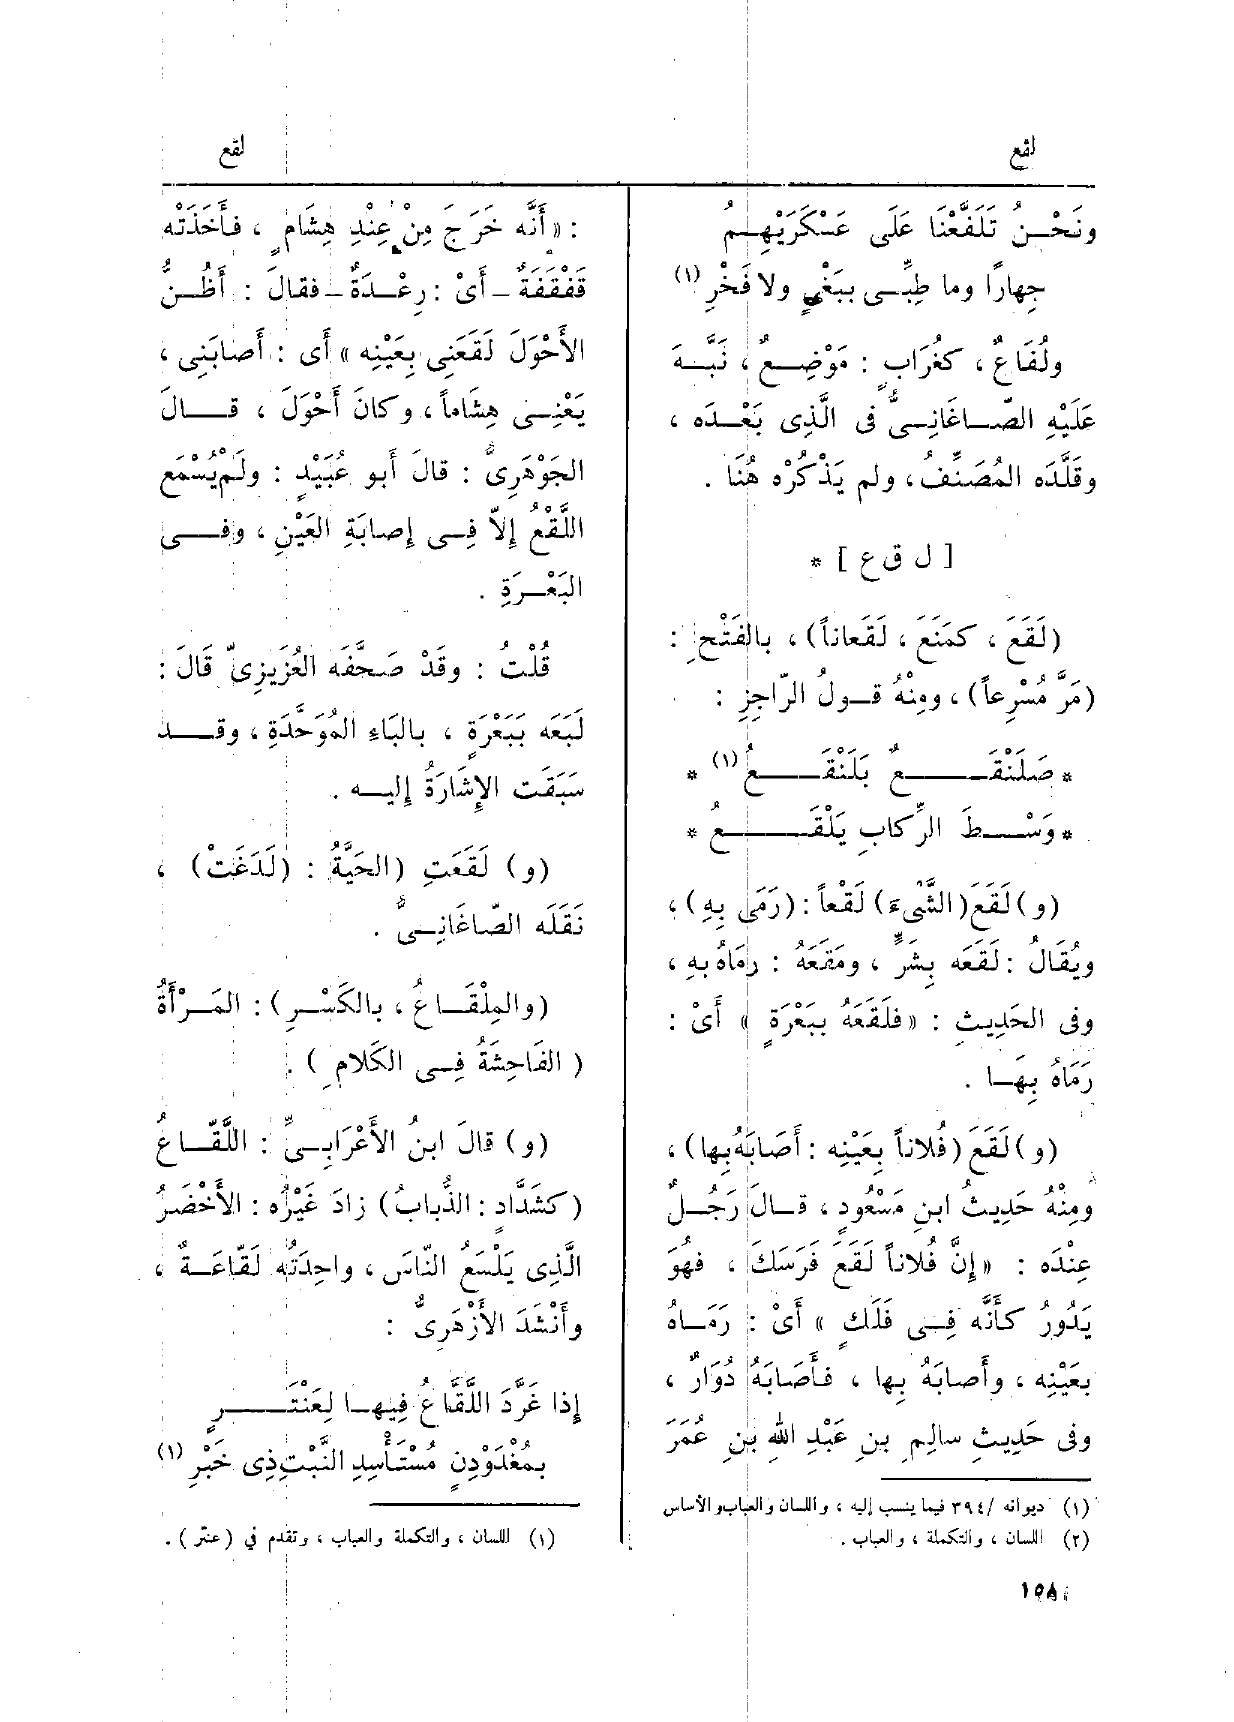 لقع
لقع
ونَحْـنُ تَلَفَّعْنَا عَلَى عَسْكَرَيْهِـمُ
جِهارًا وما طِبِّـى ببَغْىٍ ولا فَخْرِ (١)
ولُفَاعٌ ، كغُرَابٍ : مَوْضِـعٌ ، نَبَّـهَ
عَلَيْهِ الصّـاغَانِـىُّ فى الَّذِى بَعْـدَه ،
وقَلَّدَه المُصَنِّفُ ، ولم يَذْكُرْه هُنَا .
[ ل ق ع ] *
(لَقَعَ ، كمَنَعَ ، لَقَعاناً) ، بالفَتْحِ :
(مَرَّ مُسْرِعاً) ، ومِنْهُ قـولُ الرّاجِزِ :
* صَلَنْقَـــعٌ بَلَنْقَـــعُ (١) *
* وَسْـطَ الرِّكابِ يَلْقَـــعُ *
(و) لَقَعَ (الشَّىْءَ) لَقْعاً : (رَمَى بِهِ) ،
ويُقَالُ : لَقَعَه بِشَرٍّ ، ومَقَعَهُ : رمَاهُ بِهِ ،
وفى الحَدِيثِ : « فلَقَعَهُ ببَعْرَةٍ » أَىْ :
رَمَاهُ بِهَـا .
(و) لَقَعَ (فُلاناً بِعَيْنِه : أَصَابَهُ بِها) ،
ومِنْهُ حَدِيثُ ابنِ مَسْعُودٍ ، قـالَ رَجُـلٌ
عِنْدَه : « إِنَّ فُلاناً لَقَعَ فَرَسَكَ ، فهُوَ
يَدُورُ كأَنَّه فِـى فَلَكٍ » أَىْ : رَمَـاهُ
بعَيْنِه ، وأَصابَهُ بِها ، فأَصَابَهُ دُوَارٌ ،
وفى حَدِيثِ سالِمِ بنِ عَبْدِ اللهِ بنِ عُمَرَ
(١) ديوانه / ٣٩٤ فيما ينسب إليه ، واللسان والعباب والأساس
(٢) اللسان ، والتكملة ، والعباب .
: « أَنَّه خَرَجَ مِنْ عِنْدِ هِشَامٍ ، فأَخَذَتْه
قَفْقَفَةٌ ـ أَىْ : رِعْـدَةٌ ـ فقالَ : أَظُـنُّ
الأَحْوَلَ لَقَعَنِى بِعَيْنِه » أَى : أَصابَنِى ،
يَعْنِـى هِشَاماً ، وكانَ أَحْوَلَ ، قـالَ
الجَوْهَرِىُّ : قالَ أَبو عُبَيْدٍ : ولَمْ يُسْمَعِ
اللَّقْعُ إِلاّ فِـى إِصابَةِ العَيْنِ ، وفـى
البَعْـرَةِ .
قُلْتُ : وقَدْ صَحَّفَه العُزَيْزِىّ قَالَ :
لَبَعَه بِبَعْرَةٍ ، بالبَاءِ المُوَحَّدَةِ ، وقـد
سَبَقَت الإِشَارَةُ إِليـه .
(و) لَقَعَتِ (الحَيَّةُ : لَدَغَتْ) ،
نَقَلَه الصّاغَانِـىُّ .
(والمِلْقَـاعُ ، بالكَسْـرِ) : المَـرْأَةُ
( الفَاحِشَةُ فِـى الكَلامِ ) .
(و) قالَ ابنُ الأَعْرَابِـىِّ : اللَّقّـاعُ
(كشَدَّادٍ : الذُّبابُ) زادَ غَيْرُه : الأَخْضَرُ
الَّذِى يَلْسَعُ النّاسَ ، واحِدَتُه لَقّاعَـةٌ ،
وأَنْشَدَ الأَزْهَرِىُّ :
إِذا غَرَّدَ اللَّقّاعُ فِيهـا لِعَنْتَـــرٍ
بمُغْدَوْدِنٍ مُسْتَأْسِدِ النَّبْتِ ذِى خَبْرِ (١)
(١) اللسان ، والتكملة والعباب ، وتقدم في ( عنتر ) .
١٥٨